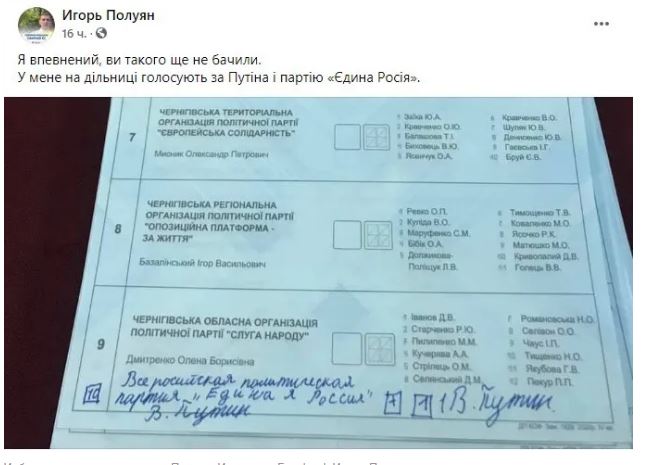 Игорь Полуян
16 ч.
Я впевнений, ви такого ще не бачили.
У мене на дільниці голосують за Путіна і партію «Єдина Росія».
7
ЧЕРНІГІВСЬКА ТЕРИТОРІАЛЬНА
ОРГАНІЗАЦІЯ ПОЛІТИЧНОЇ ПАРТІЇ
"ЄВРОПЕЙСЬКА СОЛІДАРНІСТЬ"
Мисник Олександр Петрович
1 Заїка Ю.А.
2 Кравченко О.Ю.
3 Балашова Т.І.
4 Биховець В.Ю.
5 Ясенчук О.А.
6 Кравченко В.О.
7 Шуляк Ю.В.
8 Денисенко Ю.В.
9 Гаєвська І.Г.
10 Бруй Є.В.
8
ЧЕРНІГІВСЬКА РЕГІОНАЛЬНА
ОРГАНІЗАЦІЯ ПОЛІТИЧНОЇ ПАРТІЇ
"ОПОЗИЦІЙНА ПЛАТФОРМА -
ЗА ЖИТТЯ"
Базалінський Ігор Васильович
1 Ревко О.П.
2 Куліда В.О.
3 Маруфенко С.М.
4 Бібік О.А.
5 Должикова-
Поліщук Л.В.
Тимошенко Т.В.
Коваленко М.О.
8 Ясочко Р.К.
9 Матюшко М.О.
10 Криволапий Д.В.
11 Голець В.В.
9
ЧЕРНІГІВСЬКА ОБЛАСНА ОРГАНІЗАЦІЯ
ПОЛІТИЧНОЇ ПАРТІЇ "СЛУГА НАРОДУ"
Дмитренко Олена Борисівна
1 Іванов Д.В.
2 Старченко Р.Ю.
Пилипенко М.М.
4 Кучерява А.А.
5 Стрілець О.М.
6 Селянський Д.М.
7 Романовська Н.О.
8 Салівон О.О.
9 Чаус І.П.
10 Тищенко Н.О.
11 Якубова Г.В.
12 Пекур П.П.
Всероссийская политическая
10 партия „Единая Россия"
В. Путин
1 В. Путин